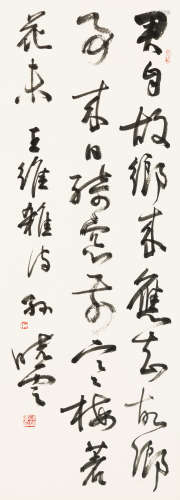 君自故鄉來應知故鄉
事來日綺窗前寒梅著
花未 王維雜詩 孫曉雲